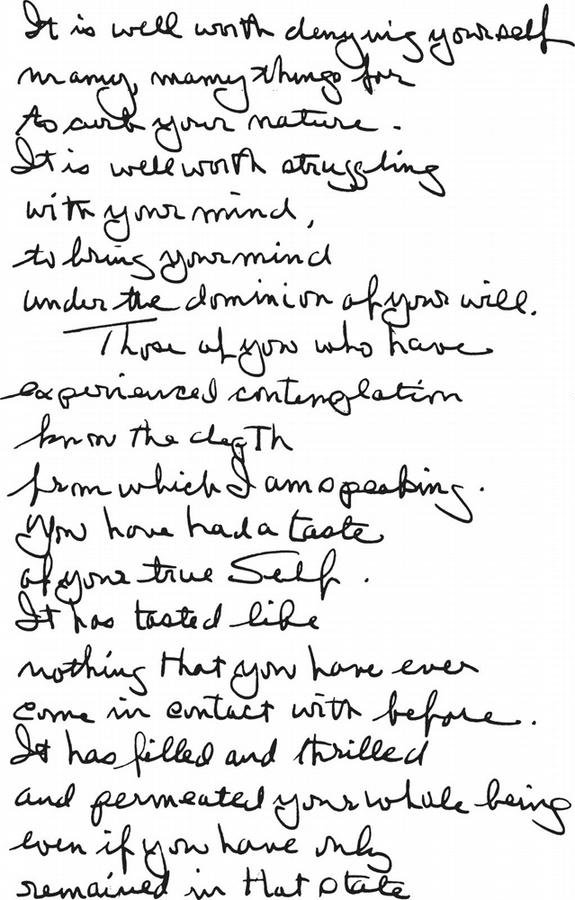 It is well worth denying yourself
many, many things for
to curb your nature.
It is well worth struggling
with your mind,
to bring your mind
under the dominion of your will.
Those of you who have
experienced contemplation
know the depth
from which I am speaking.
You have had a taste
of your true Self.
It has tasted like
nothing that you have ever
come in contact with before.
It has filled and thrilled
and permeated your whole being
even if you have only
remained in that state